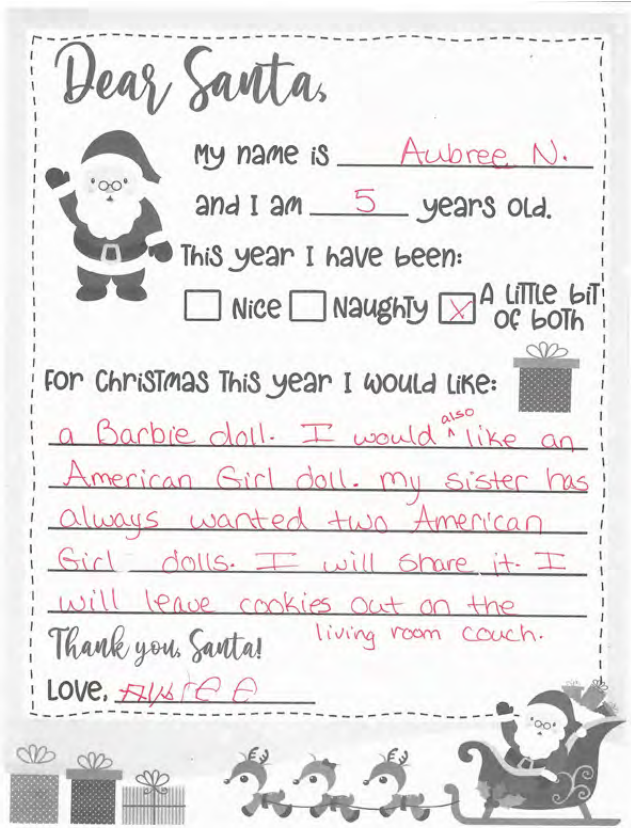 Dear Santa,
My name is Aubree N.
and I am 5 years old.
This year I have been:
Nice Naughty X A little bit of both
For Christmas this year I would like:
a Barbie doll. I would also like an
American Girl doll. my sister has
always wanted two American
Girl dolls. I will share it. I
will leave cookies out on the
living room couch.
Thank you, Santa!
Love, Aubree